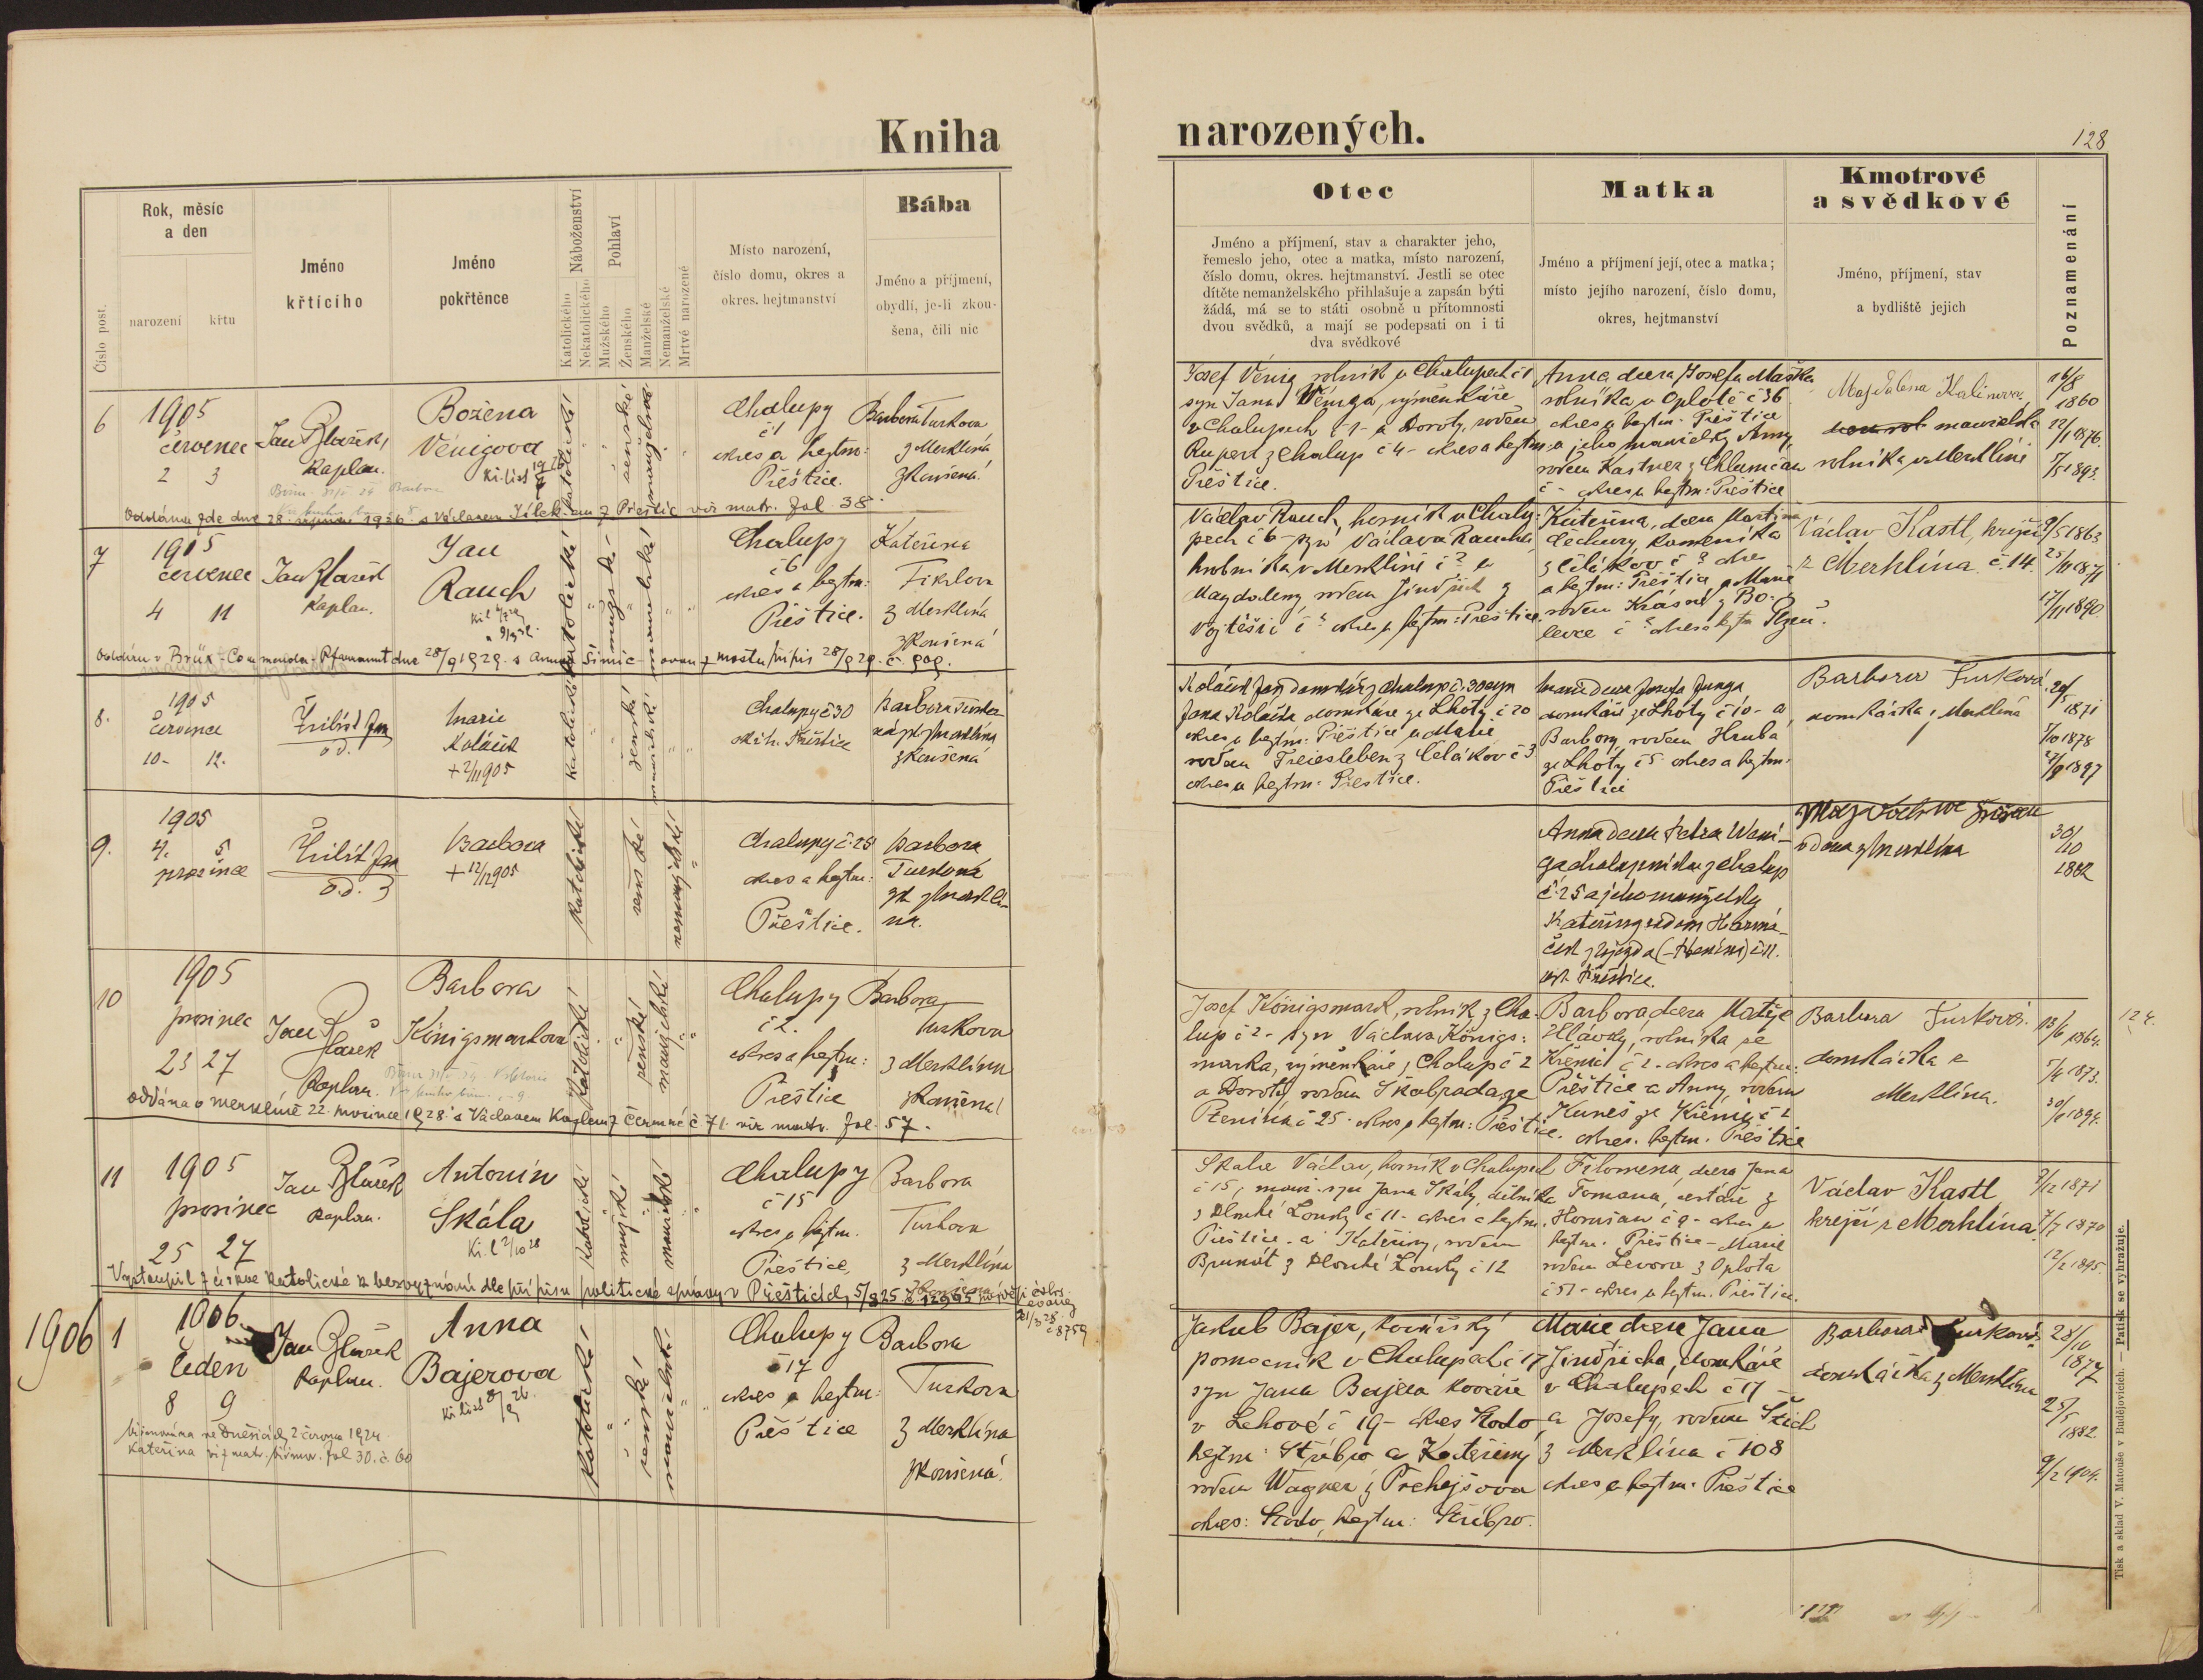 Kniha
narozených.
128
Číslo post.
Rok, měsíc
a den
narození
křtu
Jméno
křtícího
Jméno
pokřtěnce
Náboženství
Katolického
Nekatolického
Pohlaví
Mužského
Ženského
Manželské
Nemanželské
Mrtvé narozené
Místo narození,
číslo domu, okres a
okres. hejtmanství
Bába
Jméno a příjmení,
obydlí, je-li zkou-
šena, čili nic
Otec
Jméno a příjmení, stav a charakter jeho,
řemeslo jeho, otec a matka, místo narození,
číslo domu, okres. hejtmanství. Jestli se otec
dítěte nemanželského přihlašuje a zapsán býti
žádá, má se to státi osobně u přítomnosti
dvou svědků, a mají se podepsati on i ti
dva svědkové
Matka
Jméno a příjmení její, otec a matka;
místo jejího narození, číslo domu,
okres, hejtmanství
Kmotrové
a svědkové
Jméno, příjmení, stav
a bydliště jejich
Poznamenání
6
1905
červenec
2 3
Jan Blažek,
Kaplan.
Božena
Vénigova
katolické
ženské
manželské
Chalupy
č 1
okres a hejtm:
Přeštice.
Barbora Turkova
z Merklína
zkoušená.
Josef Vénig rolník v Chalupech č 1
syn Jana Véniga, výměnkáře
v Chalupech č 1 - a Doroty, rodem
Rupert z Chalup č 4 - okres a hejtm:
Přeštice.
Anna dcera Josefa Maška
rolníka v Oplotě č 36
okres a hejtm: Přeštice
a jeho manželky Anny,
rodem Kastner z Chlumčan
č - okres a hejtm: Přeštice
Magdalena Kalinova,
manželka
rolníka v Merklíně
16/8
1860
12/1 1876.
7/5 1893.
Oddána zde dne 28. 1936 s Václavem Jílek-em z Přeštic viz matr. fol. 38
7
1905
červenec
4 11
Jan Blažek
Kaplan.
Jan
Rauch
katolické
mužské
manželské
Chalupy
č 6
okres a hejtm:
Přeštice.
Kateřina
Fikrlova
z Merklína
zkoušená
Václav Rauch, horník v Chalu-
pech č 6 - syn Václava Raucha,
hrobníka v Merklíně č ? a
Magdaleny rodem Jindřich z
Vojtěšic č ? okres a hejtm: Přeštice.
Kateřina, dcera Martina
Čechury kameníka
z Čilákov č ? okres
a hejtm: Přeštice a Marie
rodem Krásné z Bo-
levce č ? okres a hejtm Plzeň.
Václav Kastl, krejčí
z Merklína č. 14.
9/5 1863
25/11 1871
17/11 1890.
Oddán v Brüx - Commenda - Pfarramt dne 28/9 1929. s Annou Šimic-ovou z Mostu přípis 28/9 29. č. 909.
8.
1905
července
10 - 12.
Marie
Koláček
+ 2/11 905
katolické
ženské
manželské
Chalupy č 30
okr. h. Přeštice
Barbora Turko-
vá z Merklína
zkoušená
Koláček Jan domkář z Chalup č. 30 syn
Jana Koláčka domkáře ze Lhoty č 20
okres a hejtm: Přeštice a Marie
rodem Freiesleben z Čelákov č 3
okres a hejtm: Přeštice.
Marie dcera Josefa Junga
domkáře ze Lhoty č 10 - a
Barbory rodem Hrubá
ze Lhoty č 5 okres a hejtm:
Přeštice
Barbora Turková
domkářka z Merklína
20/
1871
7/10 1878
27/9 1897
9.
1905
4. 5
prosince
Barbora
+ 12/12 905
katolické
ženské
nemanželské
Chalupy č. 28
okres a hejtm:
Přeštice.
Barbora
Turkova
zk. z Merklí-
na.
Anna dcera Petra Weni-
ga chalupníka z Chalup
č. 25 a jeho manželky
Kateřiny rodem Harmá-
ček z Újezda (-) č 11.
okr. Přeštice.
vdova z Merklína
30/
10
1882
10
1905
prosinec
23 27
Jan Blažek
Kaplan.
Barbora
Königsmarkova
katolické
ženské
manželské
Chalupy
č 2.
okres a hejtm:
Přeštice
Barbora
Turkova
z Merklína
zkoušená
Josef Königsmark, rolník z Cha-
lup č 2 - syn Václava Königs-
marka, výměnkáře z Chalup č 2
a Doroty, rodem Škabrada, ze
Ženich č 25 - okres a hejtm: Přeštice.
Barbora dcera Matěje
Hlávky, rolníka ze
Křenic č 2 - okres a hejtm:
Přeštice a Anny, rodem
Kuneš ze Křenic č 2
okres. hejtm. Přeštice
Barbora Turková.
domkářka z
Merklína.
13/6 1864.
5/4 1873.
30/ 1894.
oddána v Merklíně 22. prosince 1928 s Václavem Kaplem z Čermné č. 71. viz matr. fol. 57.
11
1905
prosinec
25 27
Jan Blažek
Kaplan.
Antonín
Skála
Kř. l. 2/10 28
katolické
mužské
manželské
Chalupy
č 15
okres a hejtm.
Přeštice,
Barbora
Turkova
z Merklína
Skála Václav, horník v Chalupech
č 15, manž. syn Jana Skály, dělníka
z Dlouhé Louky č 11 - okres a hejtm.
Přeštice - a Kateřiny, rodem
Brunát z Dlouhé Louky č 12
Filomena, dcera Jana
Tomana, cestáře z
Horušan č 9 - okres a
hejtm. Přeštice - Marie
rodem Levora z Oplota
č 51 - okres a hejtm. Přeštice.
Václav Kastl
krejčí z Merklína
3/12 1871
7/7 1870
12/2 1895.
Vystoupil z církve katolické k bezvyznání dle přípisu politické správy v Přešticích, 5/9 25
21/3 28
č 8759
1906
1
1906
leden
8 9
Jan Blažek
Kaplan.
Anna
Bajerova
katolické
ženské
manželské
Chalupy
č 17
okres a hejtm:
Přeštice
Barbora
Turkova
z Merklína
zkoušená.
Jakub Bajer, kovářský
pomocník v Chalupech č 17
syn Jana Bajera kováře
v Lehově č 19 - okres Stodo
hejtm: Stříbro a Kateřiny
rodem Wagner z Prehejšova
okres: Stodo, hejtm: Stříbro.
Marie dcera Jana
Jindřicha, domkáře
v Chalupech č 17 -
a Josefy, rodem Štich
z Merklína č 108
okres a hejtm: Přeštice
Barbora Turková
domkářka z Merklína
28/10
1877
25/5
1882.
9/2 1904.
biřmována ve Dnešicích 2. června 1924
Kateřina viz matr. biřmov. fol 30. č. 60
Tisk a sklad V. Matouše v Budějovicích. — Patisk se vyhražuje.